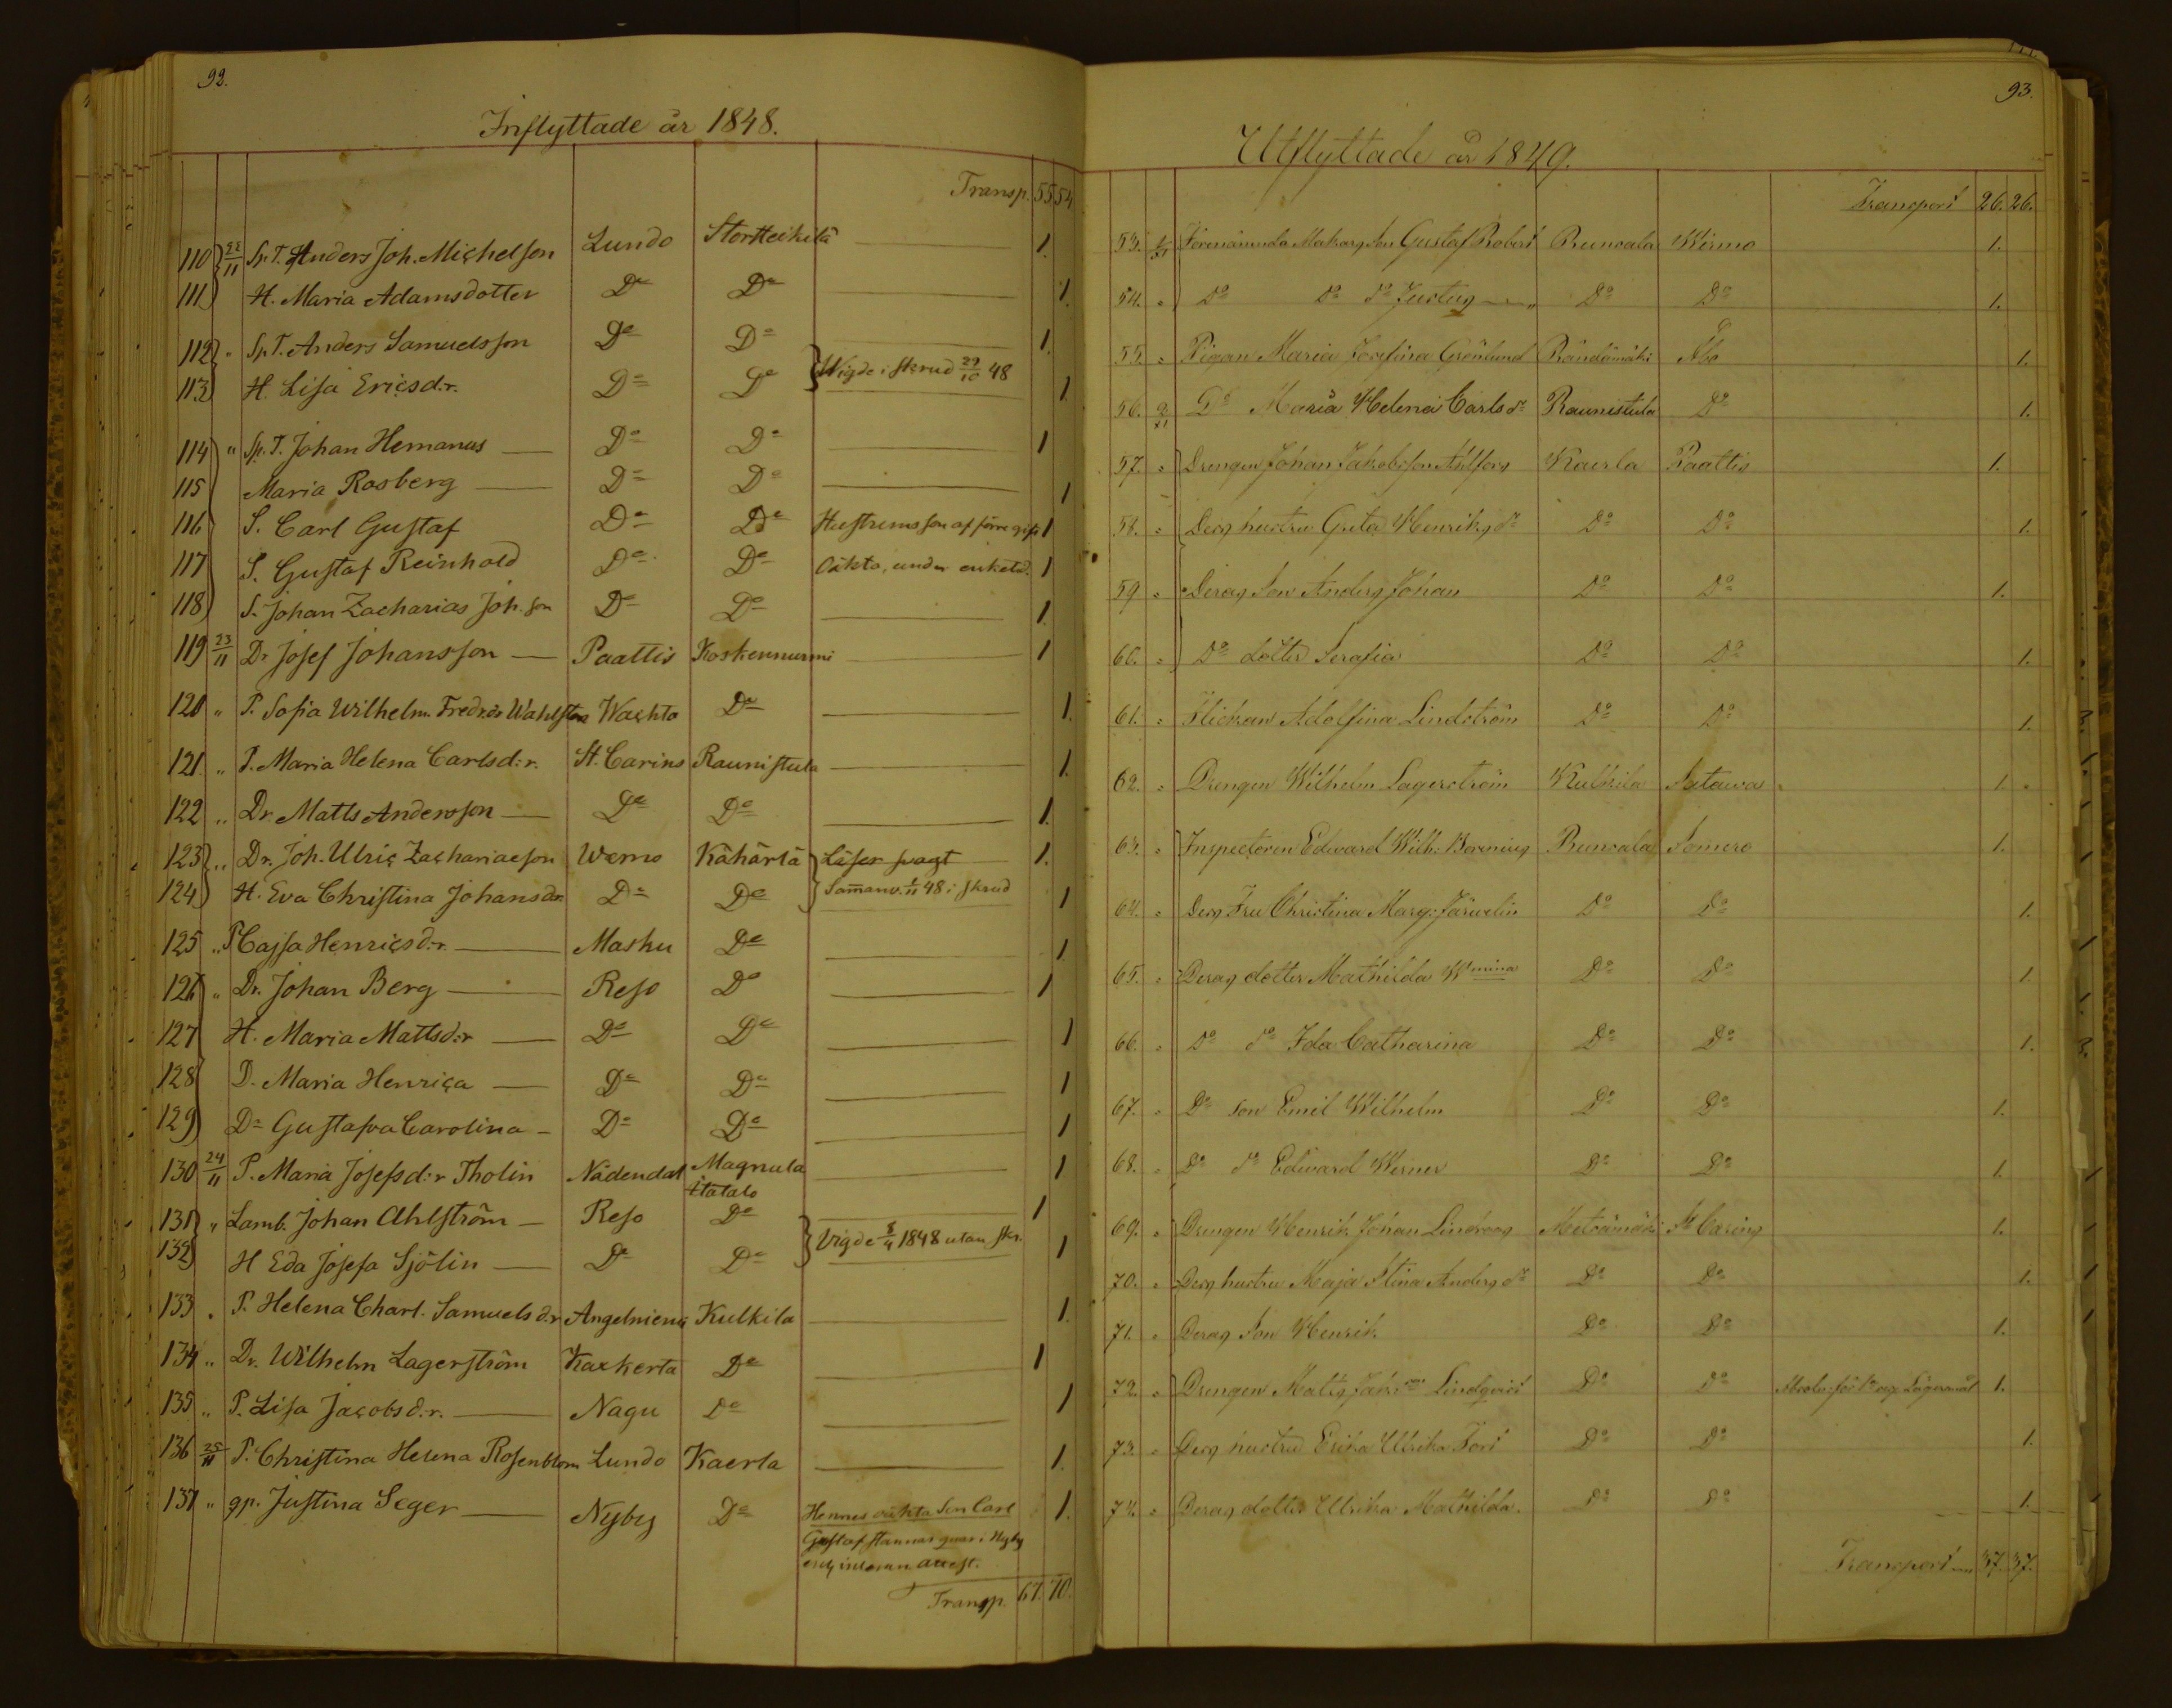 92.
Inflyttade år 1848.
Transp. 55 54
110 22/11 Sp. T. Anders Joh. Michelson Lundo Storheikilä 1.
111 H. Maria Adamsdotter Do Do 1.
112 " Sp. T. Anders Samuelsson Do Do 1.
113 H. Lisa Ericsd:r. Do Do Wigde i skrud 29/10 48 1.
114 " Sp. T. Johan Hemanus Do Do 1
115 Maria Rosberg Do Do 1
116 S. Carl Gustaf Do Do Hustruns son af förre gif. 1
117 S. Gustaf Reinhold Do Do Oäkta, under enkest. 1
118 S. Johan Zacharias Joh. son Do Do 1.
119 23/11 Dr Josef Johansson Paattis Koskennurmi 1
120 " P. Sofia Wilhelm. Fredr.dr Wahlsten Wachto Do 1.
121 " P. Maria Helena Carlsd:r. St. Carins Raunistula 1.
122 " Dr. Matts Andersson Do Do 1.
123 " Dr. Joh. Ulric Zachariaeson Wemo Kähärlä Läser svagt 1.
124 H. Eva Christina Johansdr. Do Do Samanv. 1/11 48 i skrud 1
125 " P Cajsa Henricsd:r. Masku Do 1.
126 " Dr. Johan Berg Reso Do 1
127 H. Maria Mattsd:r Do Do 1
128 D. Maria Henrica Do Do 1
129 Do Gustafva Carolina Do Do 1
130 24/11 P. Maria Josefsd:r Tholin Nådendal Magnula 1
Itätalo
131 " Lamb. Johan Ahlström Reso Do 1
132 H Eda Josefa Sjölin Do Do Vigde 8/4 1848 utan skr. 1
133 " P. Helena Charl. Samuelsd.r Angelniemi Kulkila 1.
134 " Dr. Wilhelm Lagerström Kaxkerta Do 1
135 " P. Lisa Jacobsd.r. Nagu Do 1
136 25/11 P. Christina Helena Rosenblom Lundo Kaerla 1.
137 " gp. Justina Seger Nyby Do Hennes oäkta Son Carl 1.
Gustaf stannar quar i Nyby
Transp. 67. 70.
93.
Utflyttade år 1849.
Transport 26. 26.
53. Gustaf Robert Runsala Wirmo 1.
54. " Do Do Do Justus Do Do 1.
55. " Pigan Maria Josefina Grönlund Rändämäki Åbo 1.
56. Do Maria Helena Carls dr Raunistula Do 1.
57. " Drengen Johan Jakobsson Ahlfors Kaerla Paattis 1.
58. " Des hustru Greta Henriks dr Do Do 1.
59. " Deras Son Anders Johan Do Do 1.
60. " Do dotter Serafia Do Do 1.
61. " Flickan Adolfina Lindström Do Do 1.
62. " Drengen Wilhelm Lagerström Kulkila Satawa 1.
63. " Inspectoren Edward Wilh: Borenius Runsala Somero 1.
64. " Des Fru Christina Marg: Järvelin Do Do 1.
65. " Deras dotter Mathilda Wmina Do Do 1.
66. " Do do Ida Catharina Do Do 1.
67. " Do son Emil Wilhelm Do Do 1.
68. " Do do Edward Werner Do Do 1.
69. " Drengen Henrik Johan Lindroos Metsämäki St Carins 1.
70. " Des hustru Maja Stina Anders dr Do Do 1.
71. " Deras Son Henrik Do Do 1.
72. " Drengen Matts Lindqvist Do Do 1.
73. " Des hustru Erika Ulrika Fors Do Do 1.
74. " Deras dotter Ulrika Mathilda. Do Do 1.
Transport 37. 37.